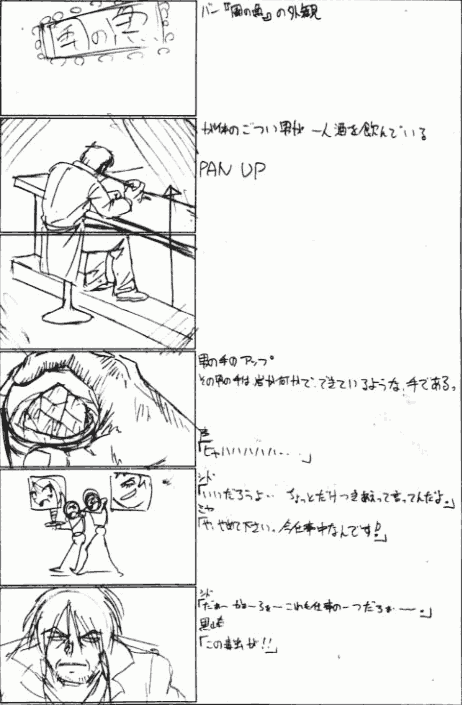 雨の
バー『雨の』の外観
ガタイのごつい男が一人酒を飲んでいる
PAN UP
男の手のアップ
その男の手は岩か何かで、できているような、手である。
声
「ヒャハハハハハ・・・」
シド
「いいだろうよ・・ちょっとだけつきあえって言ってんだよ。」
ミヤ
「や、やめて下さい。今仕事中なんです!」
シド
「だぁーかぁーらぁーこれも仕事の一つだろぉー。」
「この